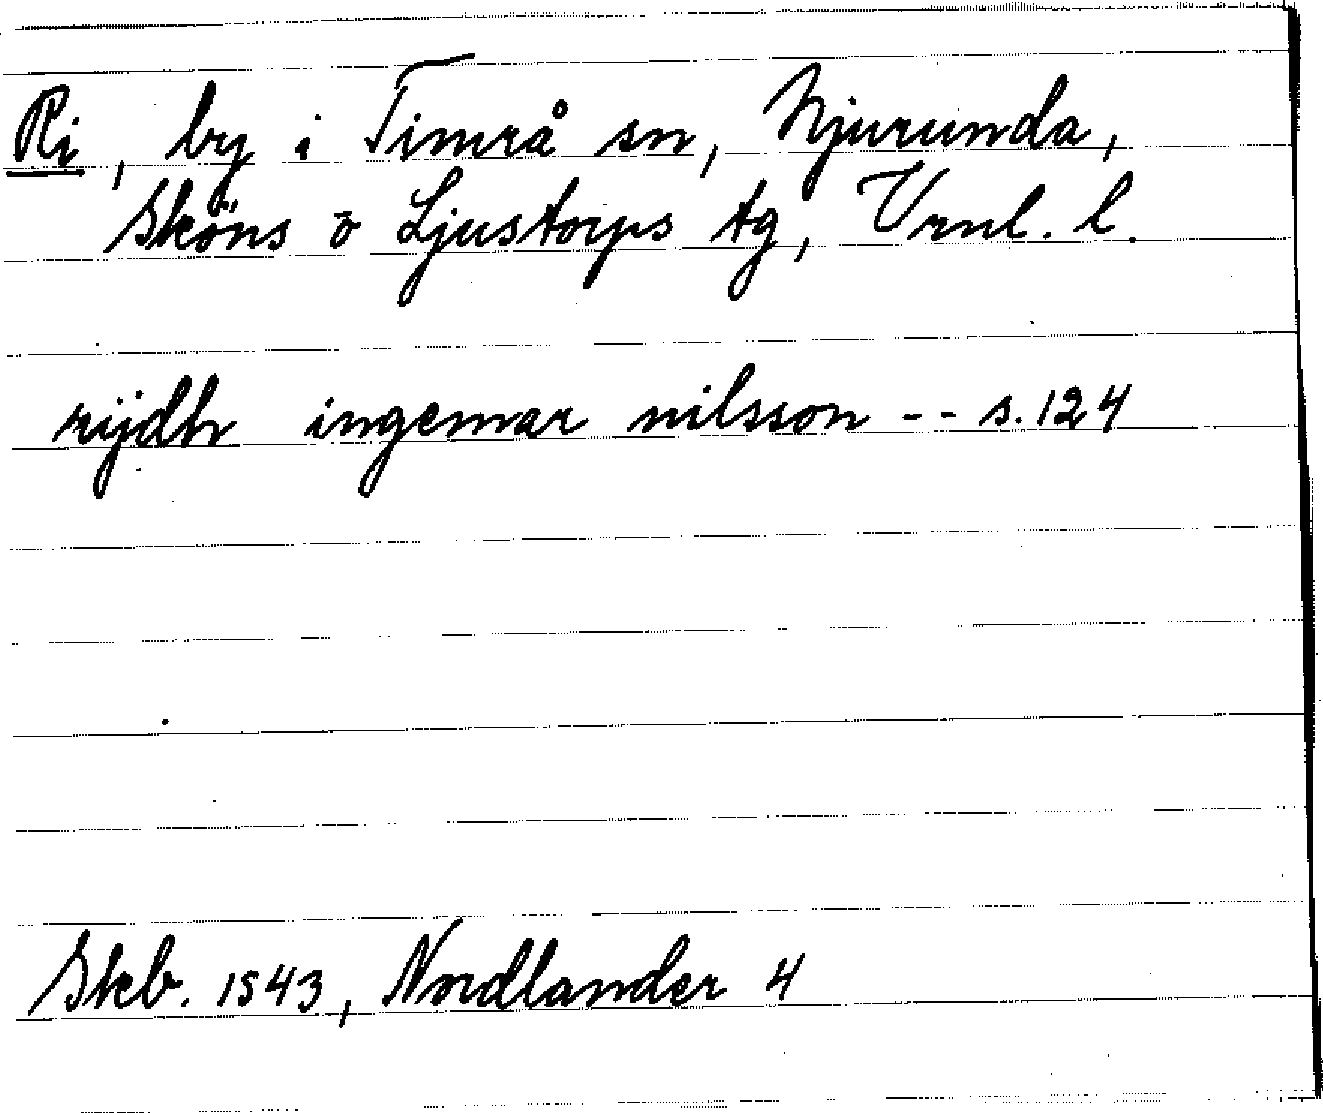 Ri, by i Timrå sn, Njurunda,
Sköns o Ljustorps tg, Vrnl. l.
rijdh ingemar nilsson -- s. 124
Skb. 1543, Nordlander 4